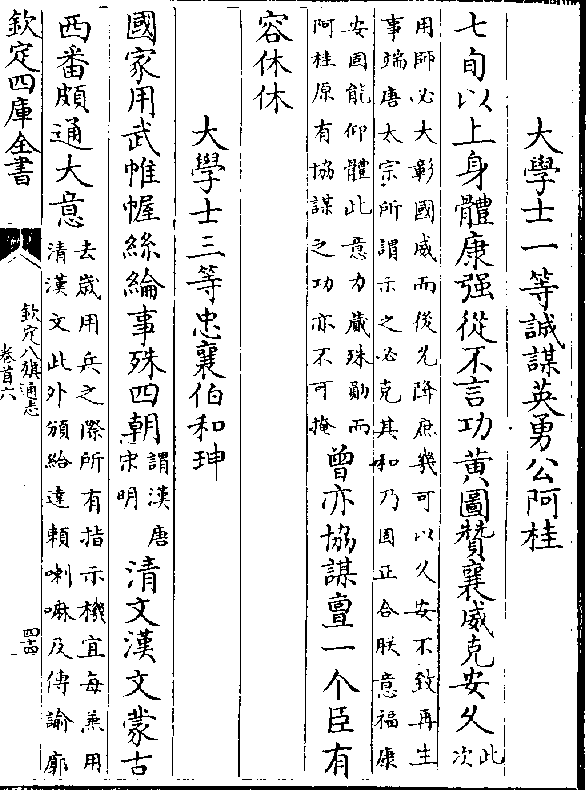 大學士一等誠謀英勇公阿桂
七旬以上身體康强從不言功黄圖贊襄威克安久此次
用師必大彰國威而後允降庶幾可以久安不致再生
事端唐太宗所謂示之必克其和乃固正合朕意福康
安固能仰體此意力蕆殊勛而
阿桂原有協謀之功亦不可掩
曾亦協謀亶一个臣有
容休休
大學士三等忠襄伯和珅
國家用武帷幄絲綸事殊四朝謂漢唐宋明清文漢文蒙古
西番頗通大意去嵗用兵之際所有指示機宜每兼用
清漢文此外頒給達賴喇嘛及傳諭廓
欽定四庫全書
欽定八旗通志
卷首六
四十四